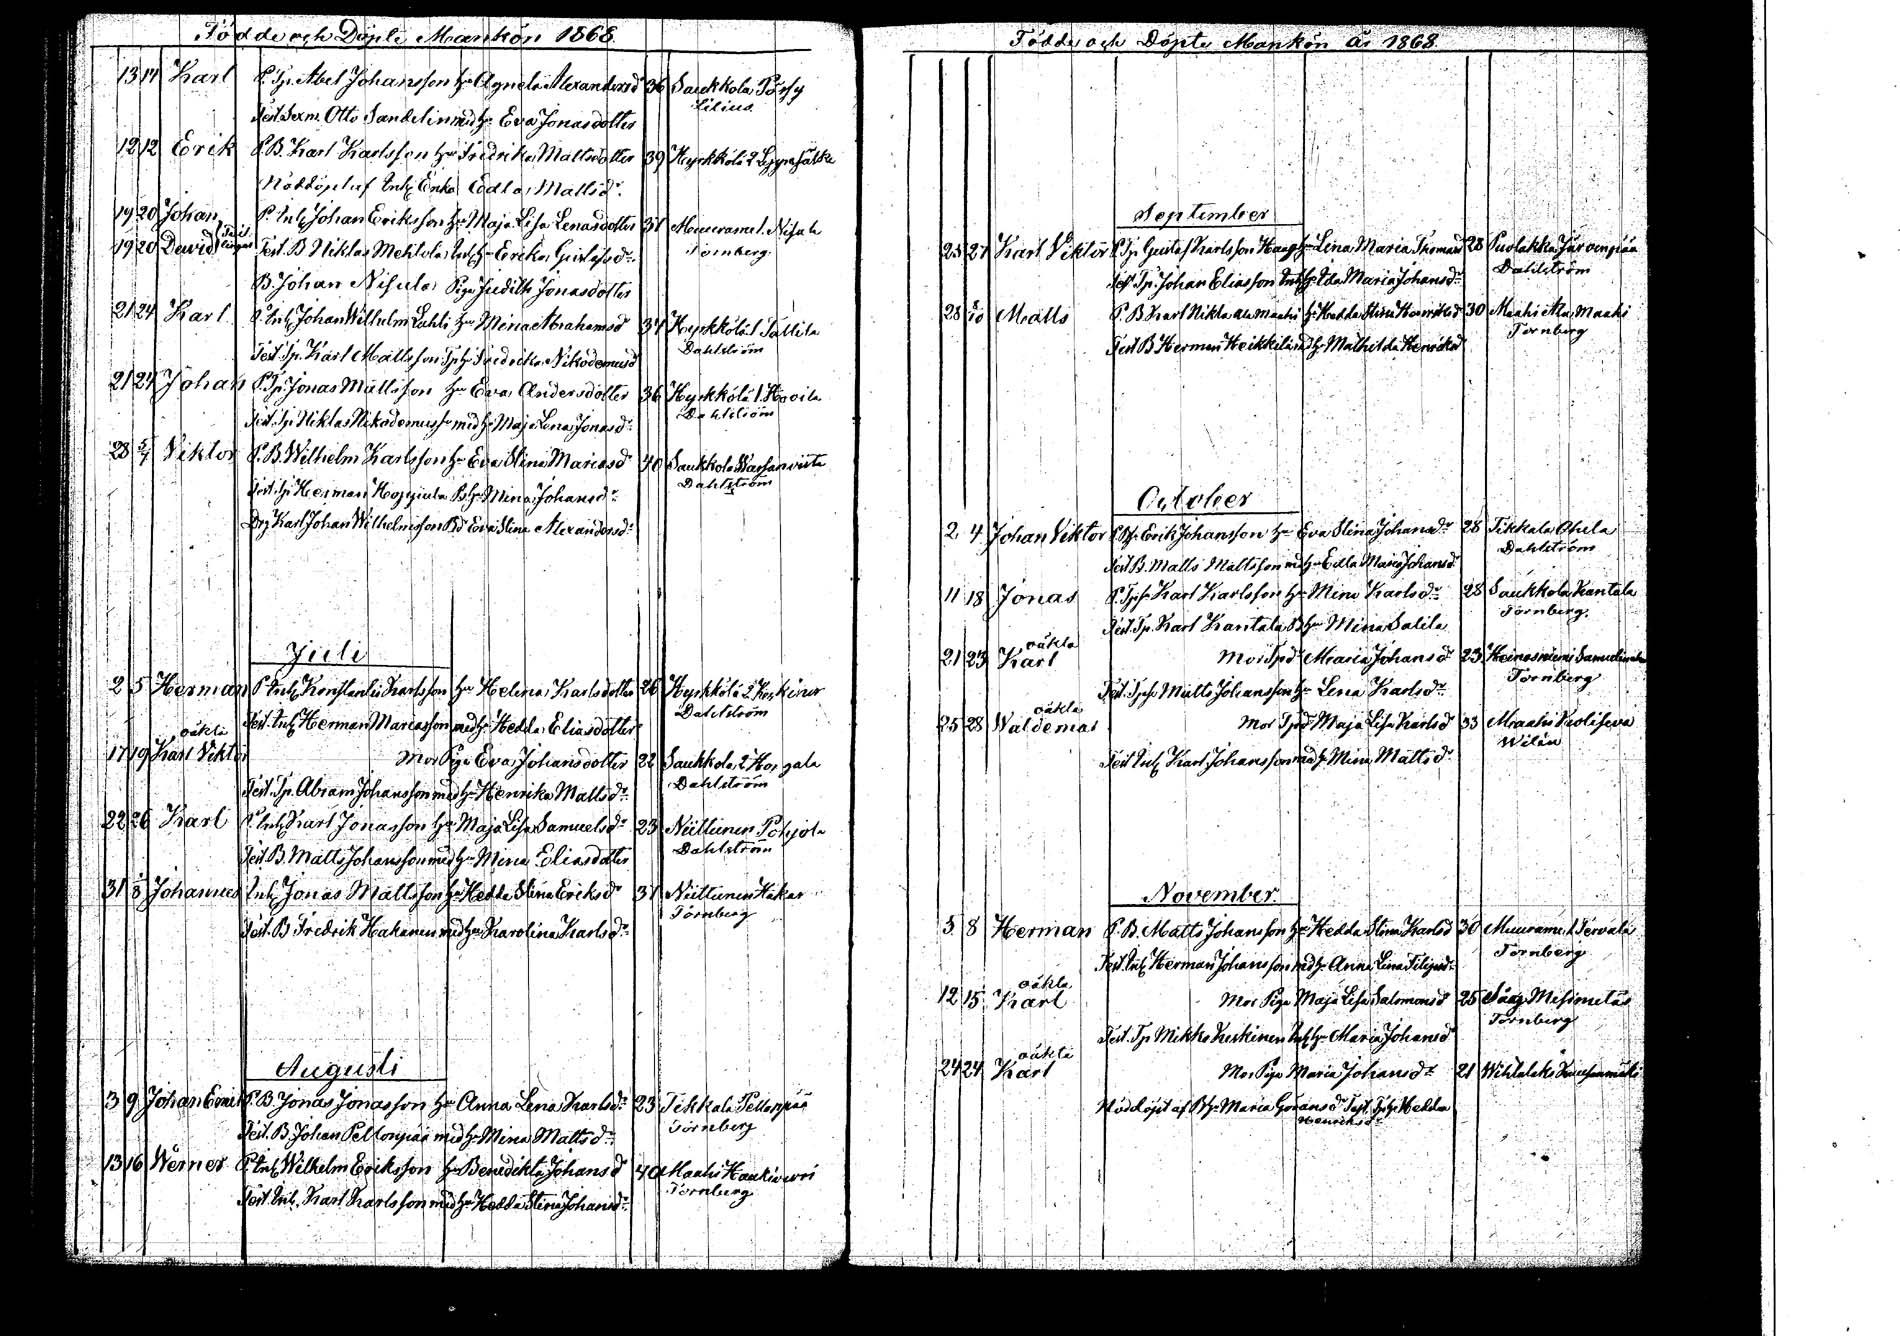 Födde och Döpte Mankön 1868.
13 17 Karl P. Tp. Abel Johansson hu Agneta Alexandersd 36 Saukkola Pörsy
Lilius
Test. Sexm. Otto Sandelin med hu Eva Jonasdotter
12 12 Erik P. B. Karl Karlsson hu Fredrika Mattsdotter 39 Hyrkkölä 2
Nöddöpt af Inh. Enka Edla Mattsdr.
19 20 Johan P. Inh. Johan Eriksson hu Maja Lisa Lenasdotter 31
19 20 David Test. B. Niklas Mehtola Inh. hu Erika Gustafsdr. Törnberg.
B. Johan Nisula Piga Judith Jonasdotter
21 24 Karl P. Inh. Johan Wilhelm Lahti hu Mina Abrahamsd 34 Hyrkkölä 1 Tallila
Dahlström
Test. Tp. Karl Mattsson Tp. hu Fredrika Nikodemusd
21 24 Johan P. Tp. Jonas Mattsson hu Eva Andersdotter 36 Hyrkkölä 1. Hovila
Dahlström
Test. Tp. Niklas Nikodemuss. med hu Maja Lena Jonasdr.
28 5/7 Viktor P. B. Wilhelm Karlsson hu Eva Stina Mariasdr 40 Saukkola
Dahlström
Test. Tp. Herman Hoppiula B. hu Mina Johansdr.
Drg Karl Johan Wilhelmsson Bd Eva Stina Alexandersdr.
Juli
2 5 Herman P. Inh. Konstantin Karlsson hu Helena Karlsdotter 26 Hyrkkölä 2
Dahlström
Test. Inh. Herman Mariasson med hu Hedda Eliasdotter
oäkta
17 19 Karl Viktor Mor Piga Eva Johansdotter 22 Saukkola 2
Dahlström
Test. Tp. Abram Johansson med hu Henrika Mattsdr.
22 26 Karl P. Inh. Karl Jonasson hu Maja Lisa Samuelsdr 23 Niittunen Pohjola
Dahlström
Test. B. Matts Johansson med hu Mina Eliasdotter
31 Johannes Inh. Jonas Mattsson hu Hedda Stina Eriksdr 31 Niittunen
Törnberg
Test. B. Fredrik Hakanen med hu Karolina Karlsdr.
Augusti
3 9 Johan Emil P. B. Jonas Jonasson hu Anna Lena Karlsdr 23 Tikkala Peltonpää
Törnberg
Test. B. Johan Peltonpää med hu Mina Mattsdr.
13 16 Werner P. Inh. Wilhelm Eriksson hu Benedikta Johansdr 40 Maahi
Törnberg
Test. Inh. Karl Karlsson med hu Hedda Stina Johansdr.
Födde och Döpte Mankön år 1868.
September
25 27 Karl Viktor P. Tp. Gustaf Karlsson Haag hu Lena Maria Thomasd 28 Puolakka Järvenpää
Dahlström
Test. Tp. Johan Eliasson Inh. hu Ida Maria Johansdr.
28 Matts P. B. Karl Nikla Ala Maahi hu Hedda Stina Henriksd 30 Maahi Ala Maahi
Törnberg
Test. B. Herman Heikkilä med hu Mathilda Henriksd
October
2 4 Johan Viktor Erik Johansson hu Eva Stina Johansdr 28 Tikkala
Dahlström
Test. B. Matts Mattsson med hu Edla Maria Johansd
11 18 Jonas Karl Karlsson hu Mina Karlsdr. 28 Saukkola Kantala
Törnberg.
Test. Tp. Karl Kantala B. hu Mina Salila
oäkta
21 23 Karl Mor Tpdr Maria Johansdr 23 Heinäsniemi
Törnberg
Test. Matts Johansson hu Lena Karlsdr.
oäkta
25 28 Waldemar Mor Tpdr Maja Lisa Karlsd 33 Maahi
Wilén
Test. Inh. Karl Johansson med hu Mina Mattsdr
November.
5 8 Herman P. B. Matts Johansson hu Hedda Stina Karlsd 30 Muurame 1 Tervala
Törnberg
Test. Inh. Herman Johansson med hu Anna Lena Filipsdr.
oäkta
12 15 Karl Mor Piga Maja Lisa Salomonsdr 25
Törnberg
Test. Tp. Mikko Keskinen Inh. hu Maria Johansd
oäkta
24 24 Karl Mor Piga Maria Johansdr. 21
Nöddöpt af B. hu Maria Göransdr Test. Tp. hu Hedda
Henriksdr